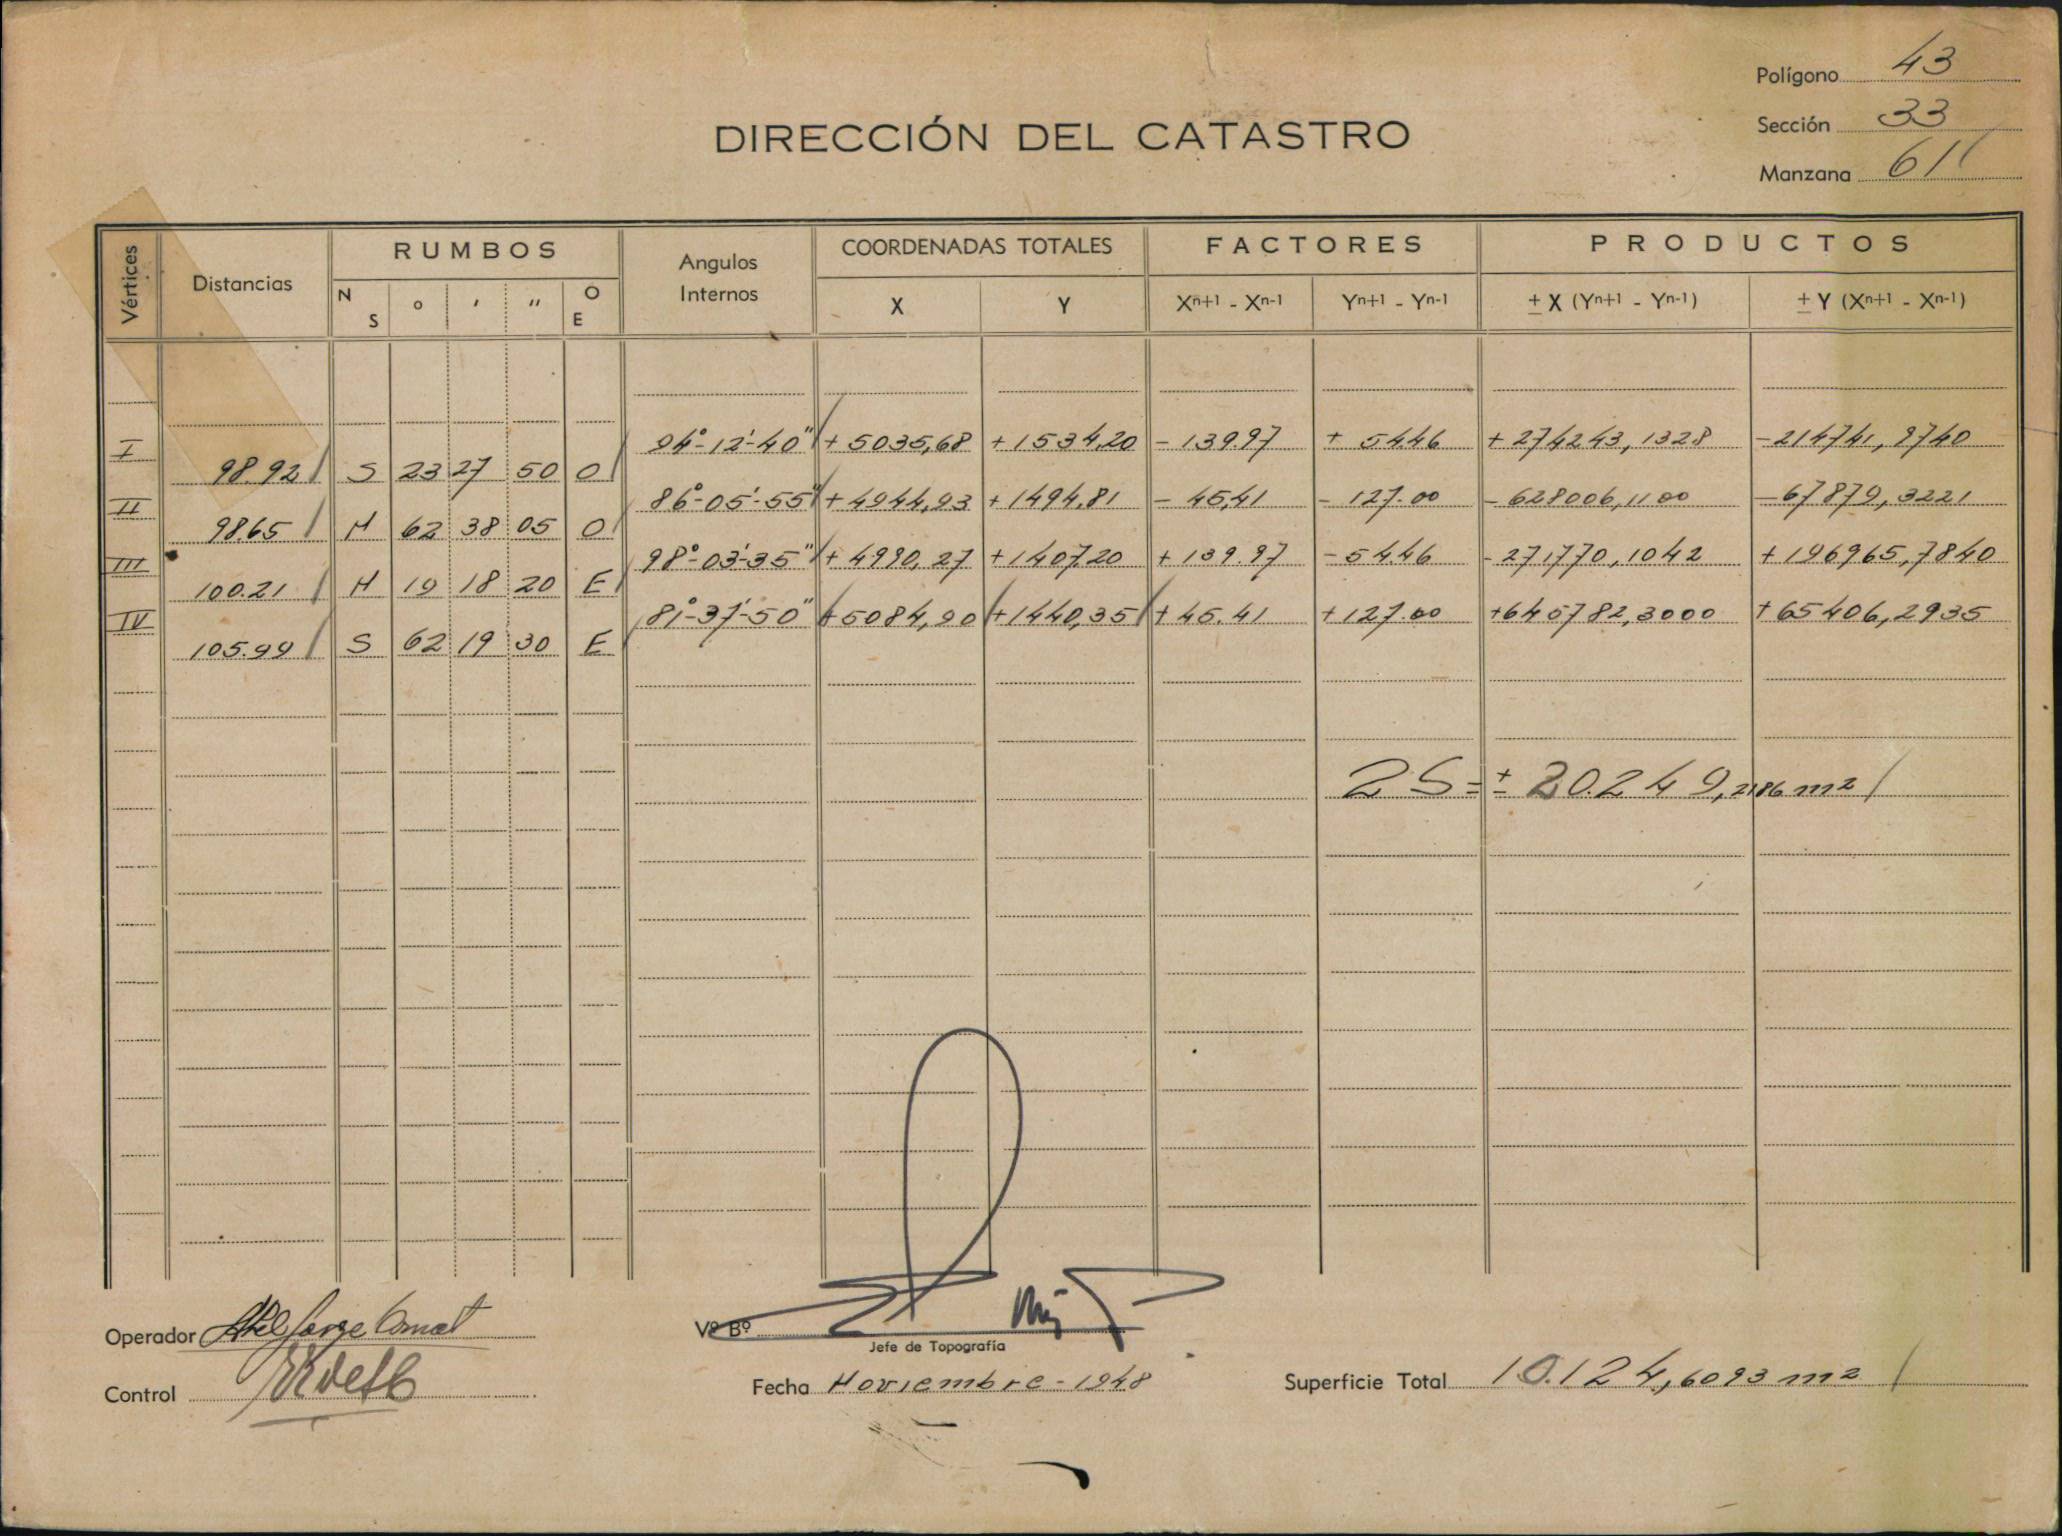 Polígono 43
Sección 33
Manzana 61
DIRECCIÓN DEL CATASTRO
Vértices Distancias RUMBOS Angulos Internos COORDENADAS TOTALES FACTORES PRODUCTOS
N S ° ′ ″ O E X Y Xn+1 - Xn-1 Yn+1 - Yn-1 ± X (Yn+1 - Yn-1) ± Y (Xn+1 - Xn-1)
I 94°-12'-40" + 5035,68 + 1534,20 - 139.97 + 54.46 + 274243,1328 - 214741,9740
98.92 S 23 27 50 O
II 86°-05'-55" + 4944,93 + 1494.81 - 45,41 - 127.00 - 628006,1100 - 67879,3221
98.65 N 62 38 05 O
III 98°-03'-35" + 4990,27 + 1407.20 + 139.97 - 54.46 - 271770,1042 + 196965,7840
100.21 N 19 18 20 E
IV 81°-37'-50" + 5084,90 + 1440,35 + 45.41 + 127.00 + 645782,3000 + 65406,2935
105.99 S 62 19 30 E
2S = ± 20.249,2186 m2
Operador
Vº Bº
Jefe de Topografía
Control
Fecha Noviembre - 1948
Superficie Total 10.124,6093 m2